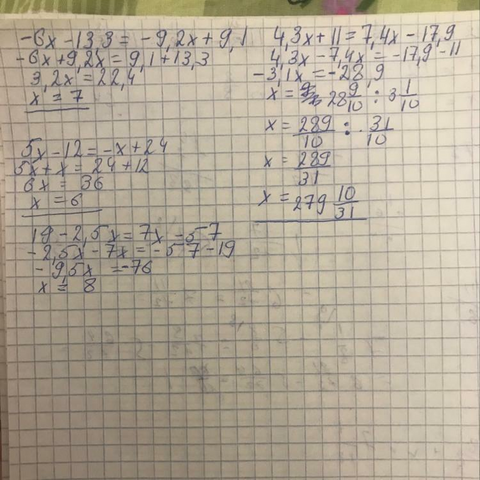 -6x - 13,3 = -9,2x + 9,1
-6x + 9,2x = 9,1 + 13,3
3,2x = 22,4
x = 7
5x - 12 = -x + 24
5x + x = 24 + 12
6x = 36
x = 6
19 - 2,5x = 7x - 57
-2,5x - 7x = -57 - 19
-9,5x = -76
x = 8
4,3x + 11 = 7,4x - 17,9
4,3x - 7,4x = -17,9 - 11
-3,1x = -28,9
x = 28 9/10 : 3 1/10
x = 289/10 : 31/10
x = 289/31
x = 279 10/31